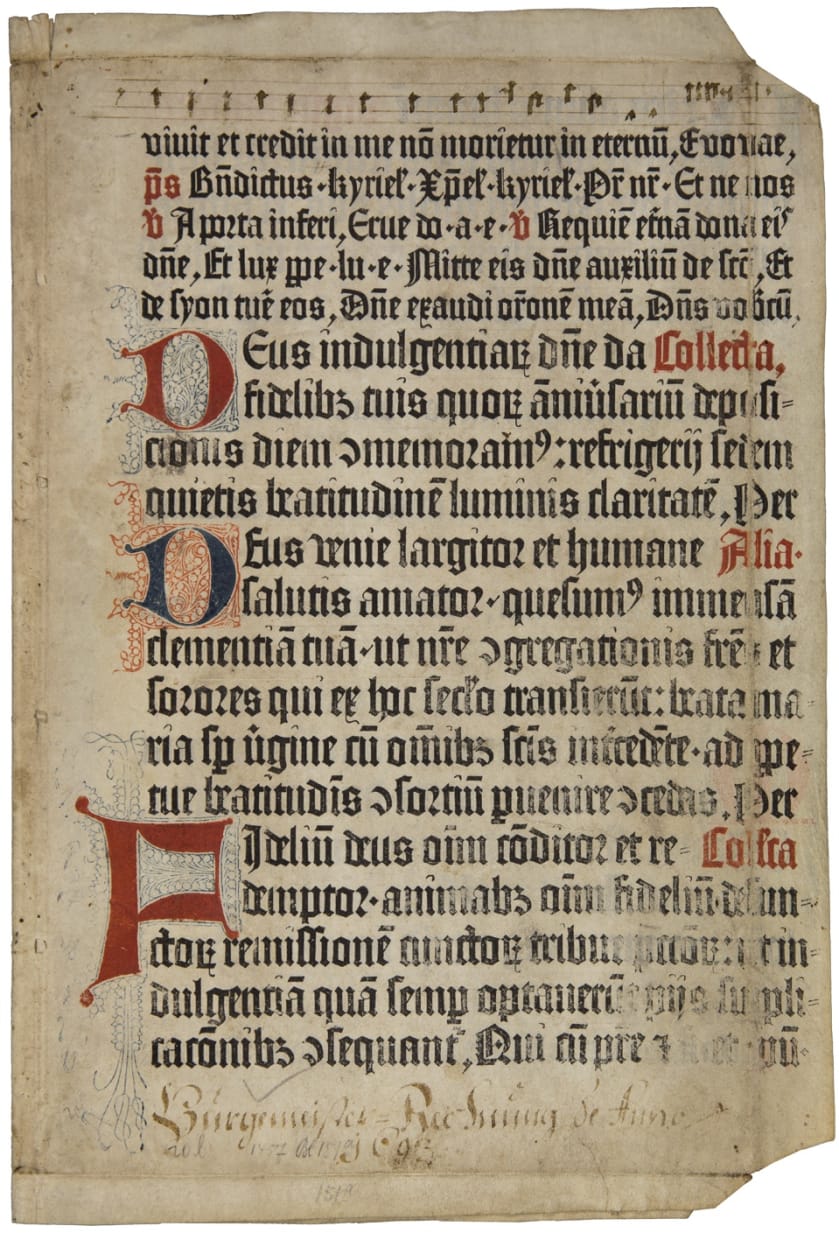 viuit et credit in me nō morietur in eternū, Euouae,
p̄s Bn̄dictus · kyriel̓ · Xp̄el̓ · kyriel̓ · Pr̄ nr̄ · Et ne nos
v̄ A porta inferi, Erue do · a · e · v̄ Requiē et̓nā dona ei᷒
dn̄e, Et lux ꝑpe · lu · e · Mitte eis dn̄e auxiliū de sct̄, Et
de syon tue̓ eos, Dn̄e exaudi or̄onē meā, Dn̄s vobiscū,
DEus indulgentiaꝝ dn̄e da Collecta,
fidelibꝫ tuis quoꝝ āniu̓sariū deposi=
cionis diem ↄmemoram᷒ : refrigerij sedem
quietis beatitudinē luminis claritatē, Per
DEus venie largitor et humane Alia ·
salutis amator · quesum᷒ immensā
clementiā tuā · ut nr̄e ↄgregationis fr̄es et
sorores qui ex hoc sec̄lo transierūt : beata ma
ria sꝑ v̓gine cū om̄ibꝫ sc̄is int̓cedēte · ad ꝑpe=
tue beatitudīs ↄsortiū ꝑuenire ↄcedas, Per
FIdeliū deus oīm cōditor et re= Col̓cta
demptor · animabꝫ oīm fideliū defun=
ctoꝝ remissionē cunctoꝝ tribue in=
dulgentiā quā semꝑ optauerūt pijs suppli=
cacōnibꝫ ↄsequant̓, Qui cū pr̄e
Bürgemeister=Rechnüng de Anno
1693
1519